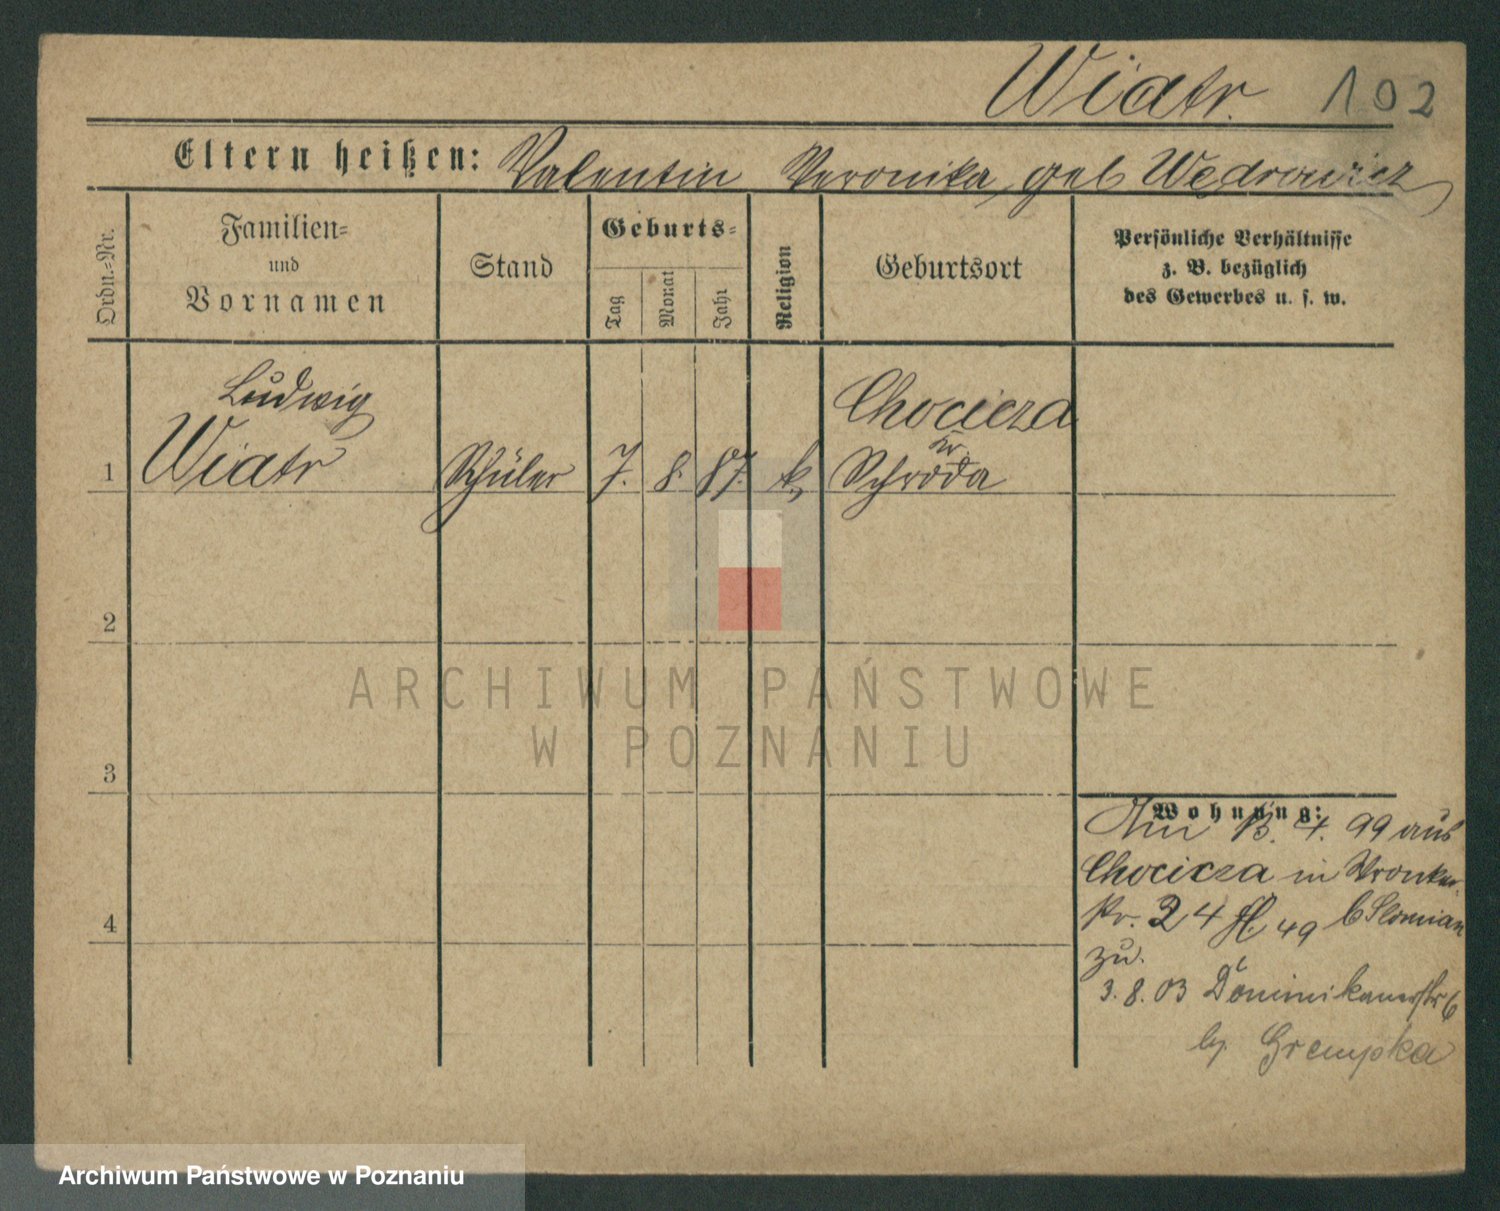 Wiatr. 102
Eltern heißen: Valentin Veronika, geb Wędrowicz
Ordn.-Nr.
Familien-
und
Vornamen
Stand
Geburts-
Tag
Monat
Jahr
Religion
Geburtsort
Persönliche Verhältnisse
z. B. bezüglich
des Gewerbes u. s. w.
Ludwig
Chocicza
Kr
1 Wiatr Schüler 7. 8. 87. k. Schroda
2
3
4
ARCHIWUM PAŃSTWOWE
W POZNANIU
Wohnung:
Am 13. 4. 99 aus
Chocicza in Wronker
str. 24 49 b Slomian
zu.
3. 8. 03 Dominikanerstr 6
by.
Archiwum Państwowe w Poznaniu